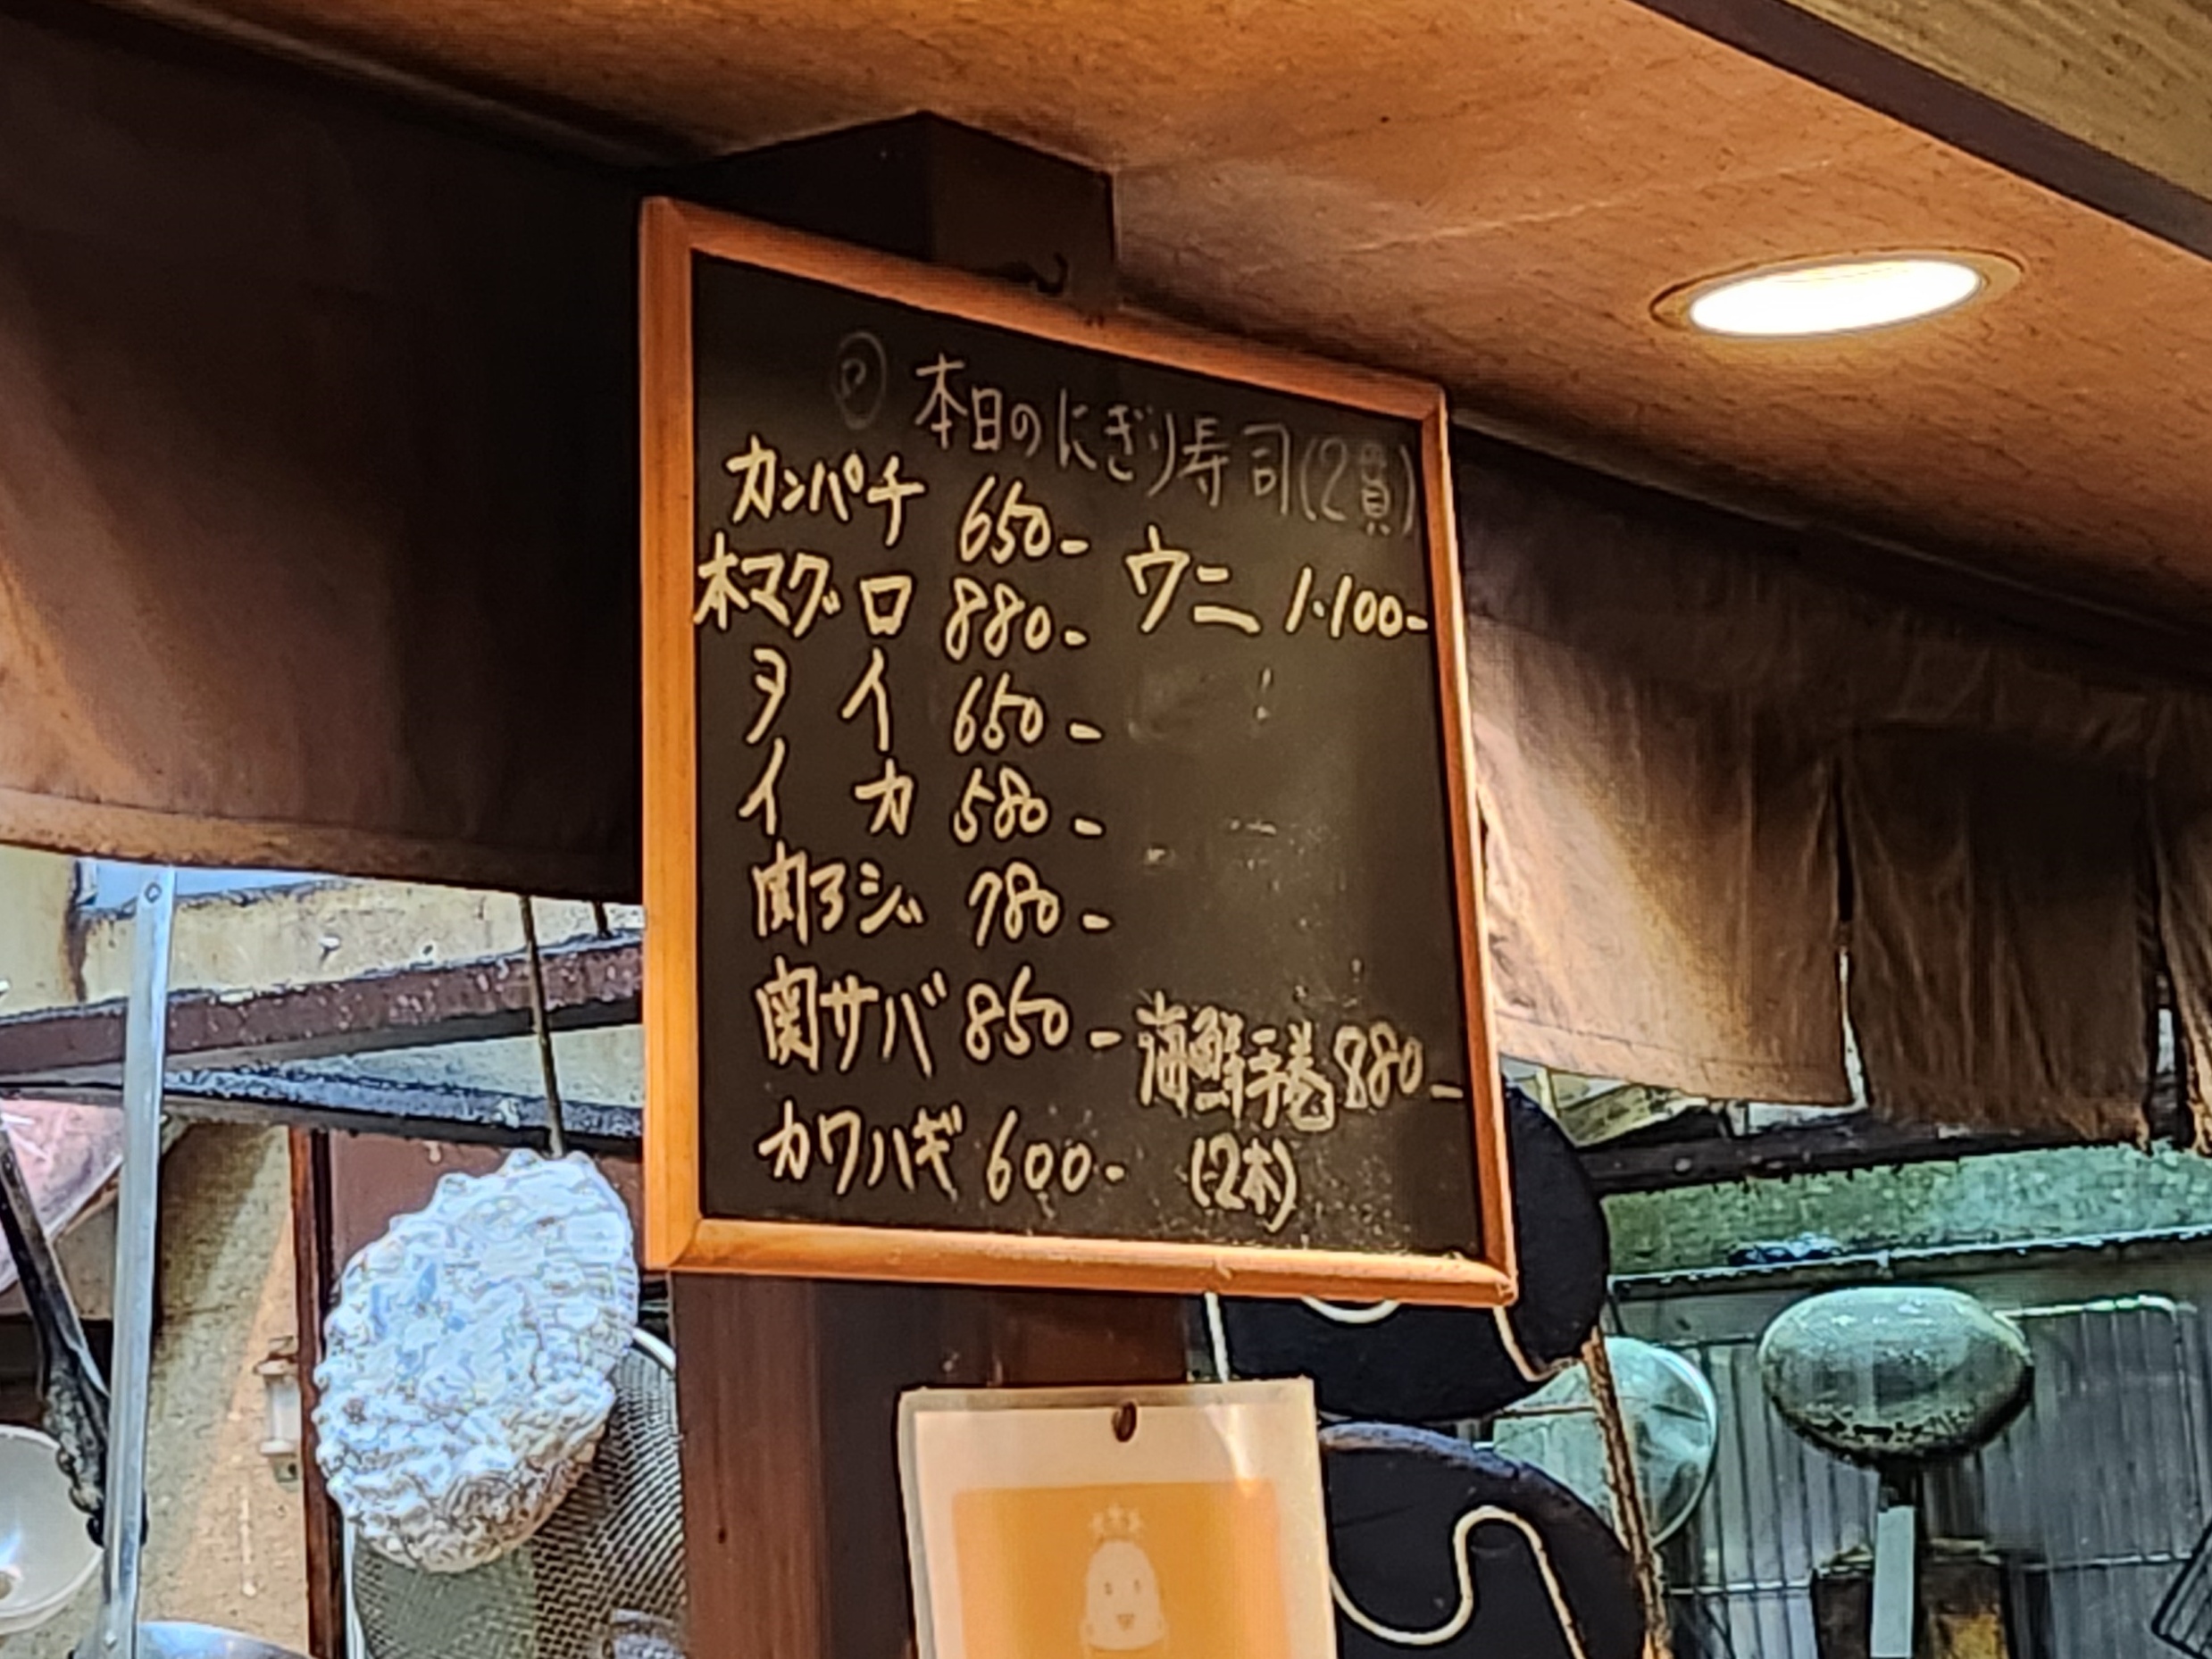 本日のにぎり寿司(2貫)
カンパチ 650-
本マグロ 880-
タイ 650-
イカ 580-
関アジ 780-
関サバ 850-
カワハギ 600-
ウニ 1.100-
海鮮手巻 880-
(2本)